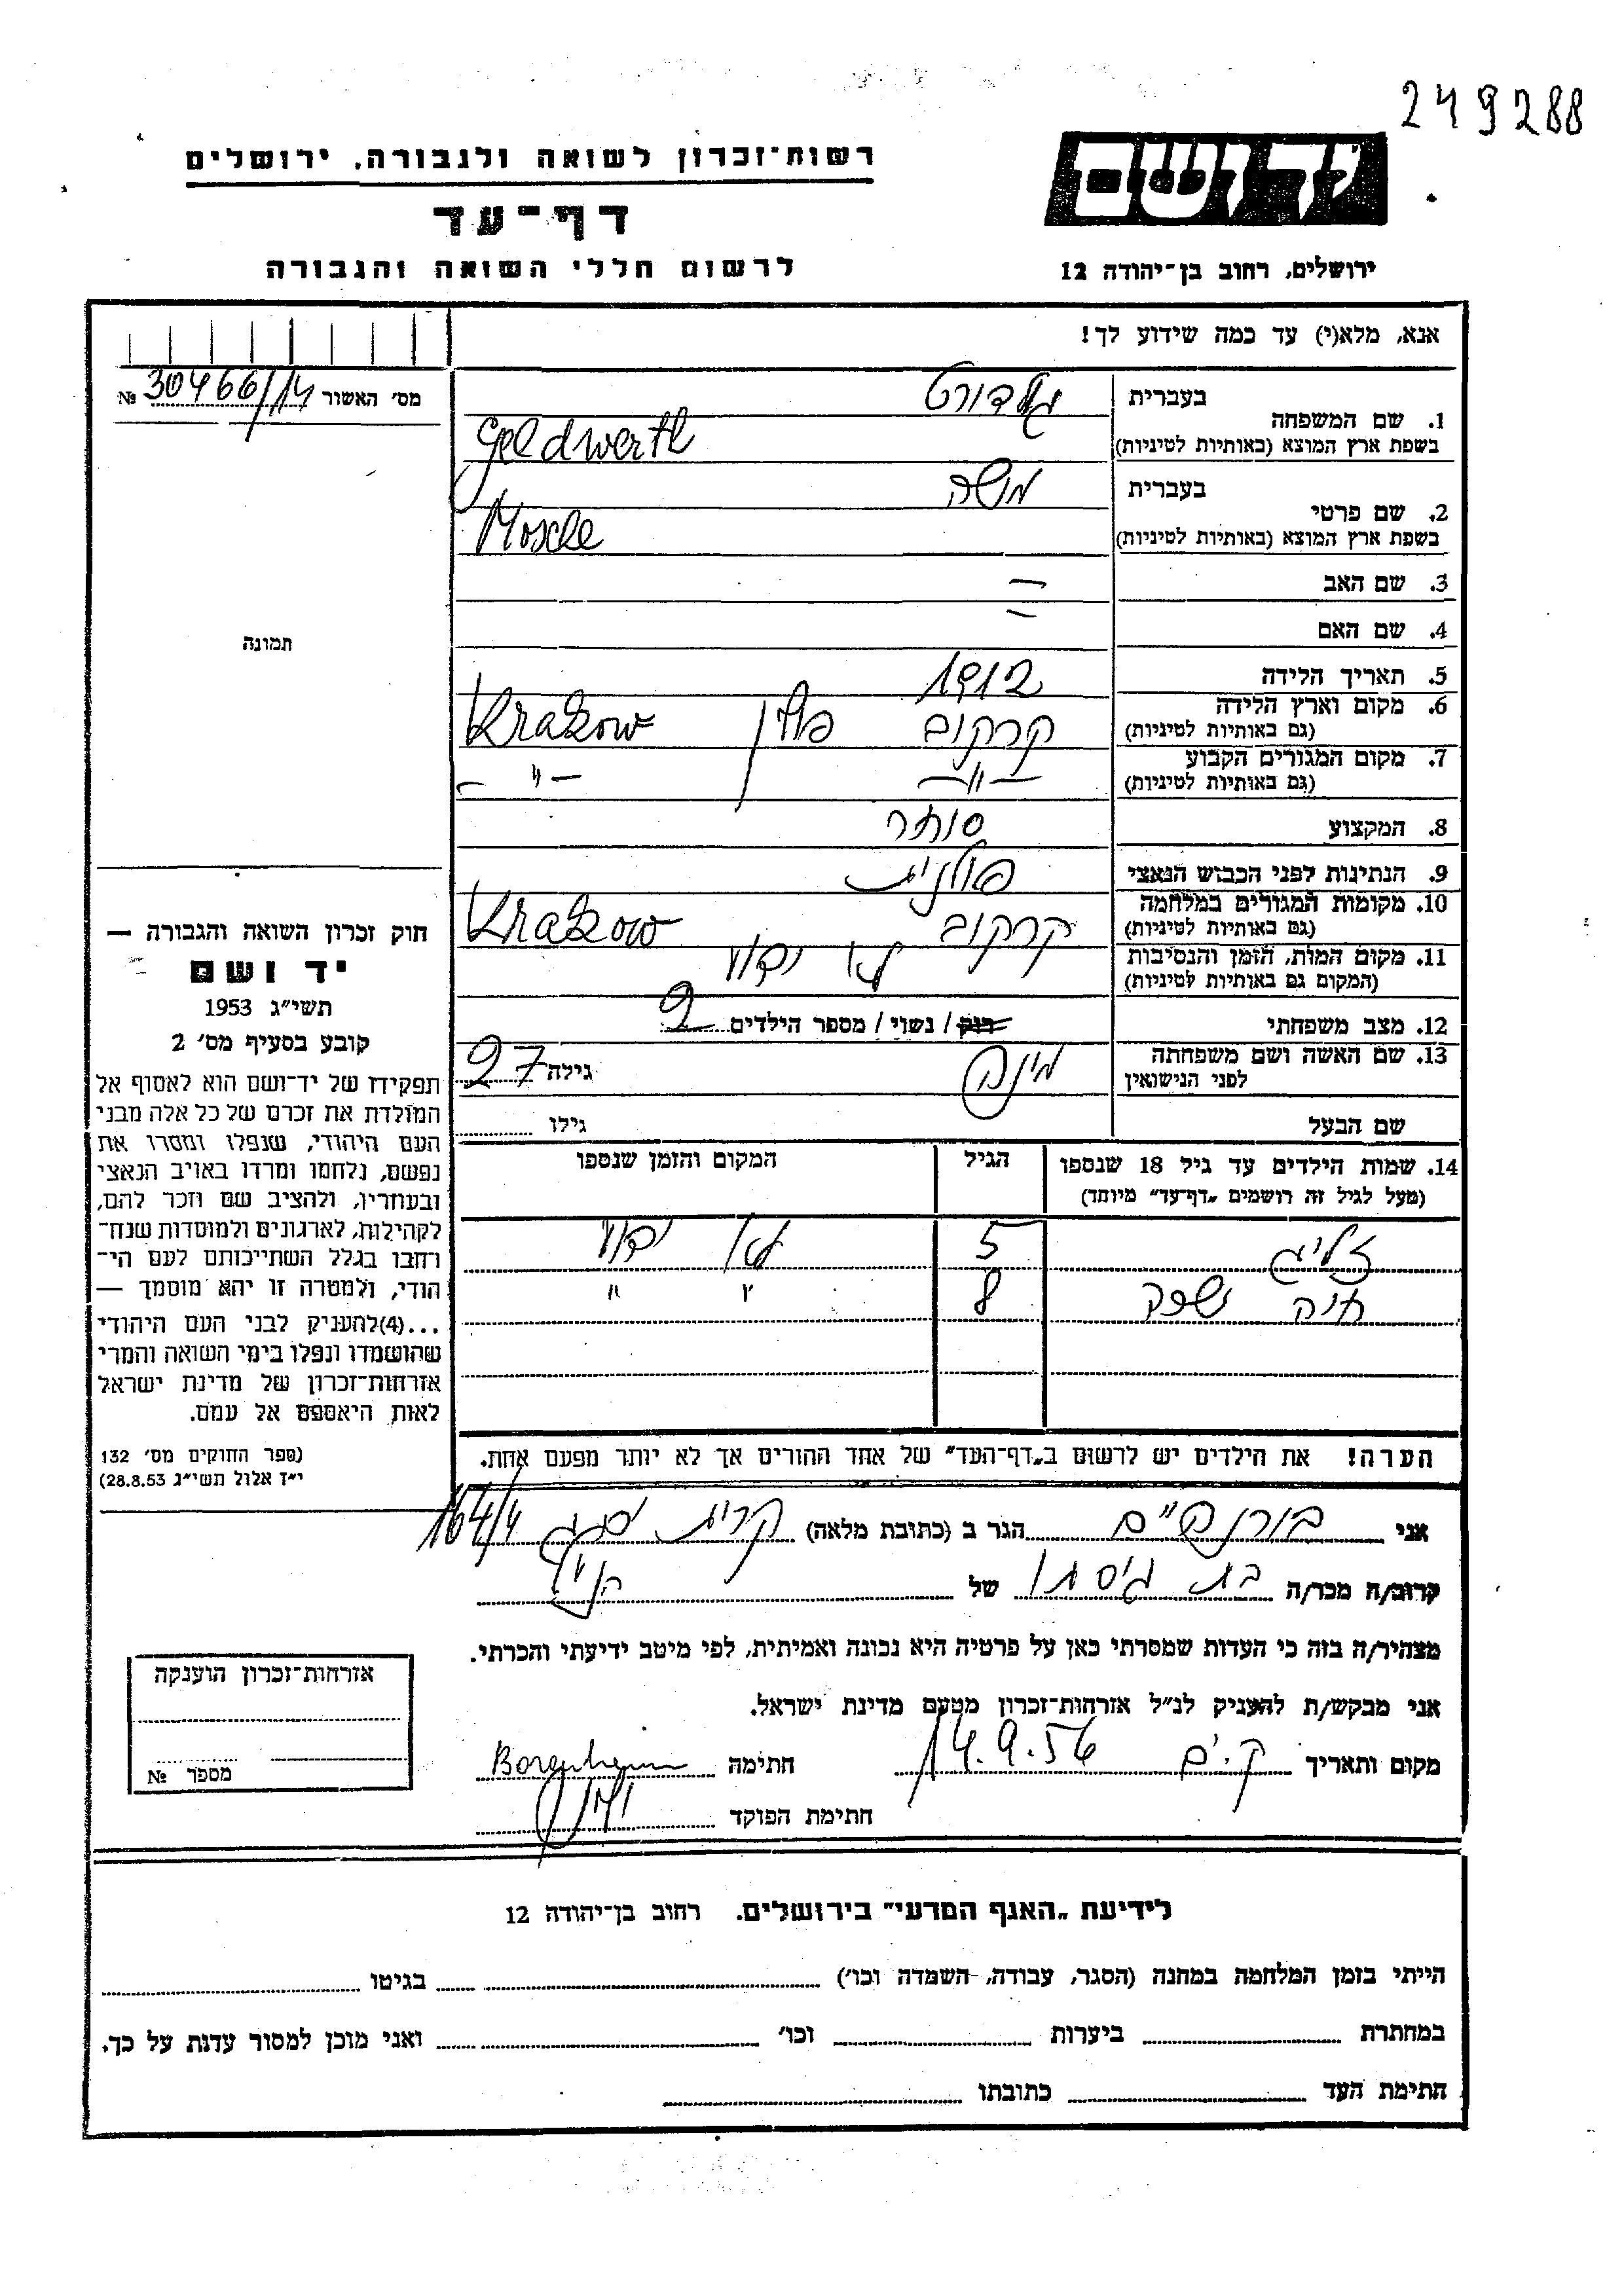 249288
יד ושם
רשות־זכרון לשואה ולגבורה, ירושלים
דף־עד
לרשום חללי השואה והגבורה
ירושלים, רחוב בן־יהודה 12
אנא, מלא(י) עד כמה שידוע לך!
מס׳ האשור 30466/14 №
1. שם המשפחה
בעברית גלדורט
בשפת ארץ המוצא (באותיות לטיניות) Geldwerth
2. שם פרטי
בעברית משה
בשפת ארץ המוצא (באותיות לטיניות) Mosche
3. שם האב –
4. שם האם –
5. תאריך הלידה 1912
6. מקום וארץ הלידה
(גם באותיות לטיניות) קרקוב פולין Krakow
7. מקום המגורים הקבוע
(גם באותיות לטיניות) –״– –״–
8. המקצוע סוחר
9. הנתינות לפני הכבוש הנאצי פולנית
10. מקומות המגורים במלחמה
(גם באותיות לטיניות) קרקוב Krakow
11. מקום המות, הזמן והנסיבות
(המקום גם באותיות לטיניות) לא ידוע
12. מצב משפחתי רוק / נשוי / מספר הילדים 2
13. שם האשה ושם משפחתה
לפני הנישואין גילה 27
שם הבעל גילו
14. שמות הילדים עד גיל 18 שנספו הגיל המקום והזמן שנספו
(מעל לגיל זה רושמים „דף־עד״ מיוחד)
זליג 5 לא ידוע
חיה 8 ״ ״
הערה! את הילדים יש לרשום ב„דף־העד״ של אחד ההורים אך לא יותר מפעם אחת.
תמונה
חוק זכרון השואה והגבורה —
יד ושם
תשי״ג 1953
קובע בסעיף מס׳ 2
תפקידו של יד־ושם הוא לאסוף אל
המולדת את זכרם של כל אלה מבני
העם היהודי, שנפלו ומסרו את
נפשם, נלחמו ומרדו באויב הנאצי
ובעוזריו, ולהציב שם וזכר להם,
לקהילות, לארגונים ולמוסדות שנח־
רבו בגלל השתייכותם לעם הי־
הודי, ולמטרה זו יהא מוסמך —
...(4)להעניק לבני העם היהודי
שהושמדו ונפלו בימי השואה והמרי
אזרחות־זכרון של מדינת ישראל
לאות היאספם אל עמם.
(ספר החוקים מס׳ 132
י״ז אלול תשי״ג 28.8.53)
אני בורנהיים הגר ב (כתובת מלאה) קרית ים 164/4
קרוב/ה מכר/ה בת גיסתו של הנ״ל
מצהיר/ה בזה כי העדות שמסרתי כאן על פרטיה היא נכונה ואמיתית, לפי מיטב ידיעתי והכרתי.
אני מבקש/ת להעניק לנ״ל אזרחות־זכרון מטעם מדינת ישראל.
מקום ותאריך ק. ים 14.9.56 חתימה
חתימת הפוקד
אזרחות־זכרון הוענקה
מספר №
לידיעת „האגף המדעי״ בירושלים. רחוב בן־יהודה 12
הייתי בזמן המלחמה במחנה (הסגר, עבודה, השמדה וכו׳) בגיטו
במחתרת ביערות וכו׳ ואני מוכן למסור עדות על כך.
חתימת העד כתובתו